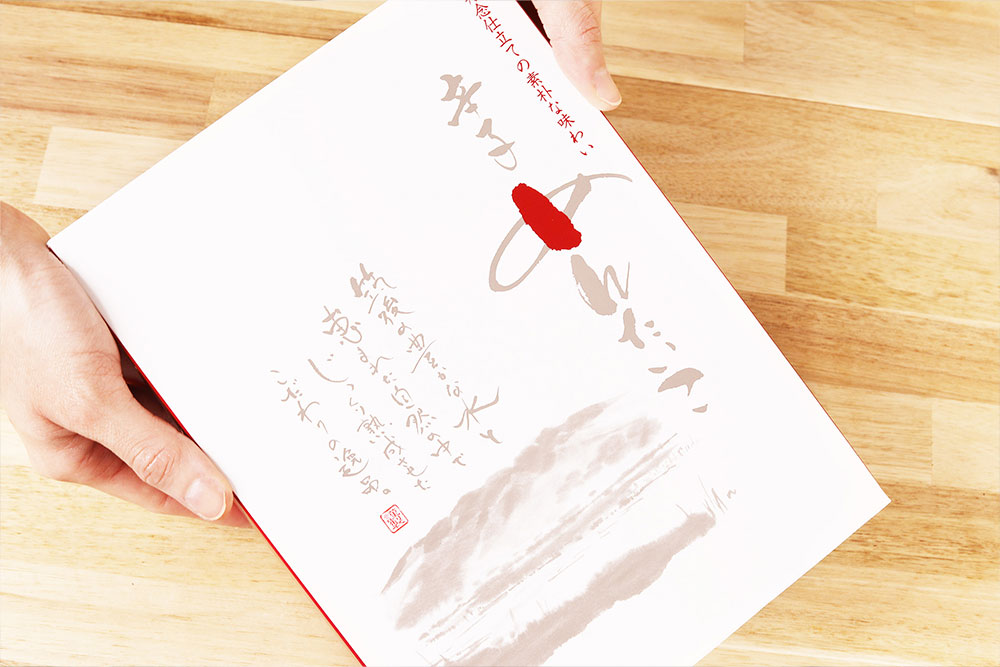 念仕立ての素朴な味わい
辛子めんたい
筑後の豊かな水と
恵まれた自然の中で
じっくり熟成させた
こだわりの逸品。
謹製